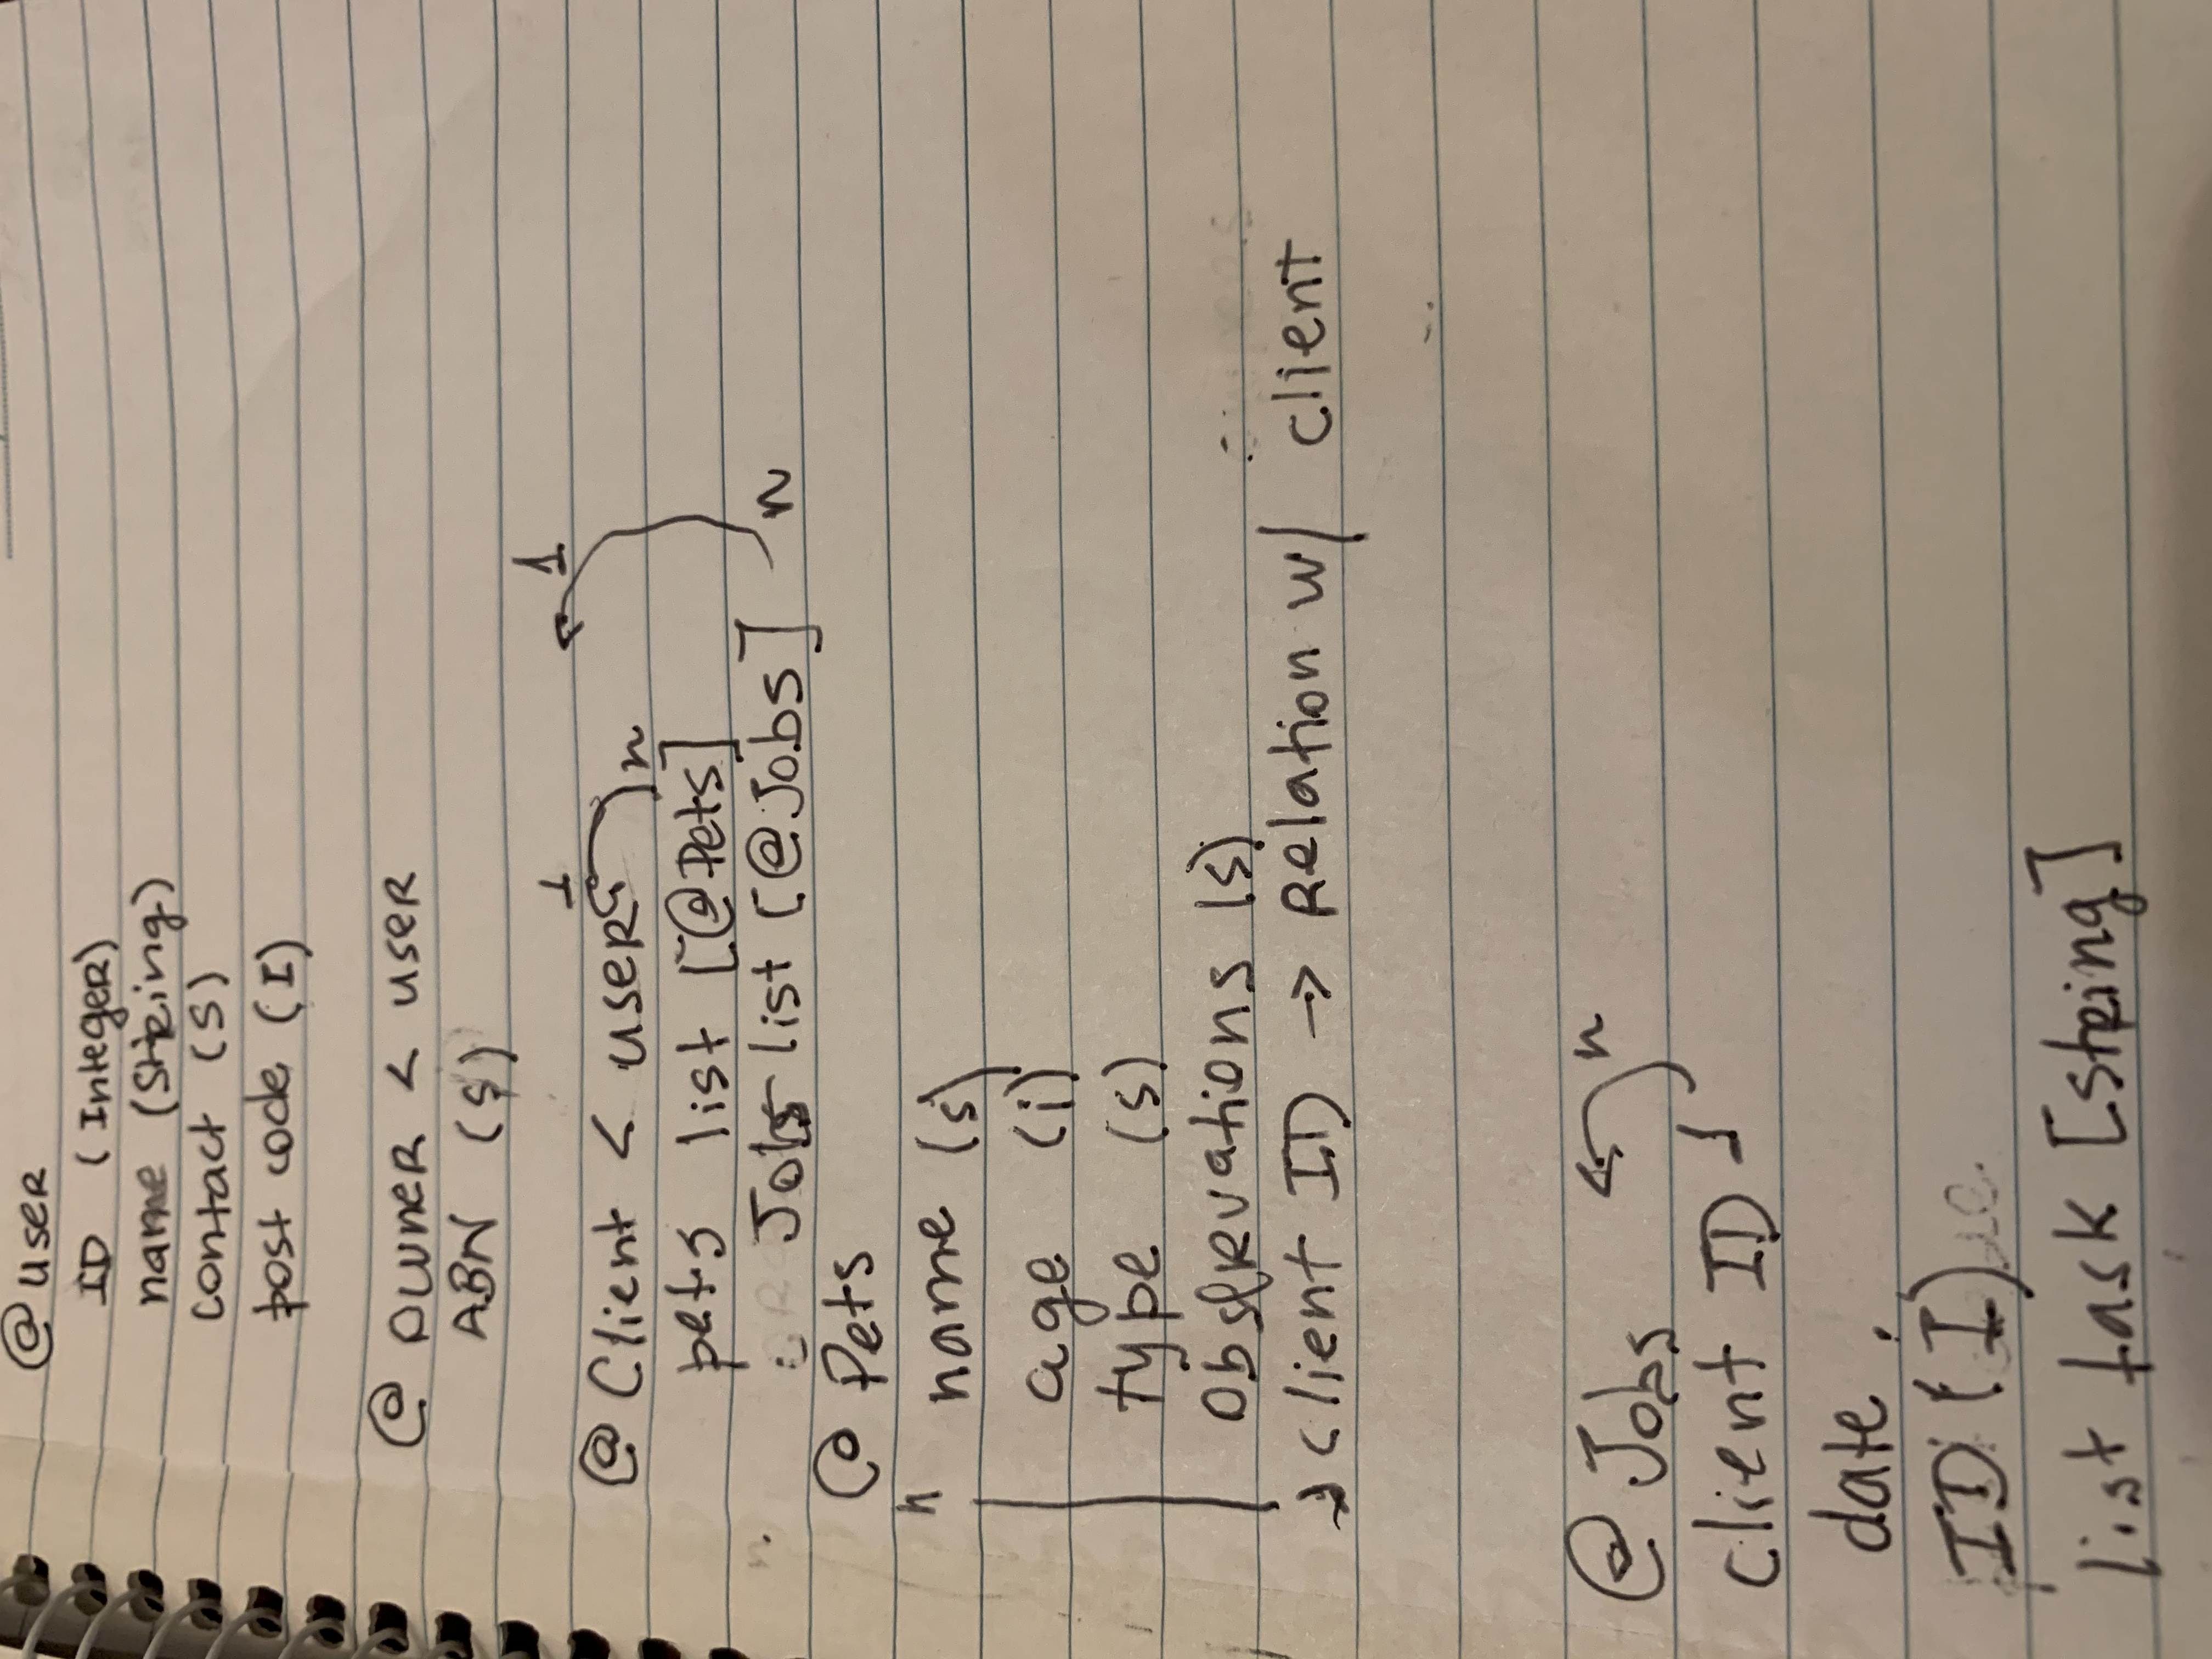 @ user
ID (Integer)
name (String)
contact (S)
post code (I)
@ owner < user
ABN (S)
1
1
@ Client < user
n
pets list [@Pets]
Jobs list [@Jobs]
n
@ Pets
n
name (s)
age (i)
type (s)
observations (s)
client ID → Relation w/ client
@ Jobs
n
client ID
date.
ID (I)
list task [string]